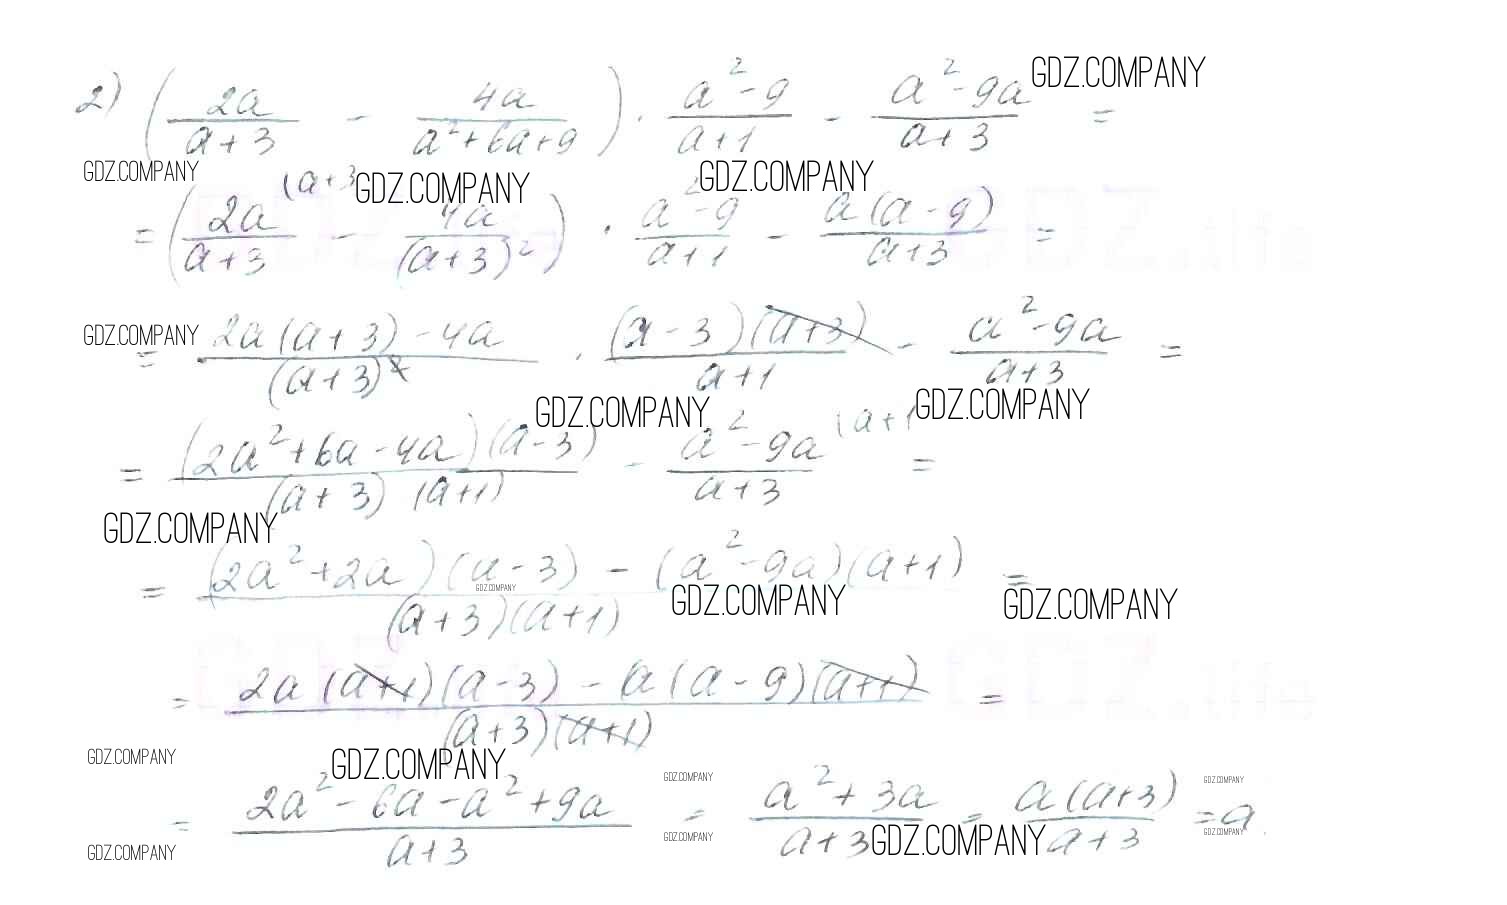 2) (2a/(a+3) - 4a/(a²+6a+9)) · (a²-9)/(a+1) - (a²-9a)/(a+3) = GDZ.COMPANY
GDZ.COMPANY GDZ.COMPANY GDZ.COMPANY
= (2a (a+3/(a+3) - 4a/(a+3)²) · (a²-9)/(a+1) - a(a-9)/(a+3) =
GDZ.COMPANY
= (2a(a+3)-4a)/(a+3)² · (a-3)(a+3)/(a+1) - (a²-9a)/(a+3) =
GDZ.COMPANY GDZ.COMPANY
= (2a²+6a-4a)(a-3)/((a+3)(a+1)) - (a²-9a (a+1)/(a+3) =
GDZ.COMPANY
= ((2a²+2a)(a-3) - (a²-9a)(a+1))/((a+3)(a+1)) =
GDZ.COMPANY GDZ.COMPANY GDZ.COMPANY
= (2a(a+1)(a-3) - a(a-9)(a+1))/((a+3)(a+1)) =
GDZ.COMPANY GDZ.COMPANY GDZ.COMPANY GDZ.COMPANY
= (2a²-6a-a²+9a)/(a+3) = (a²+3a)/(a+3) = a(a+3)/(a+3) = a.
GDZ.COMPANY GDZ.COMPANY GDZ.COMPANY GDZ.COMPANY